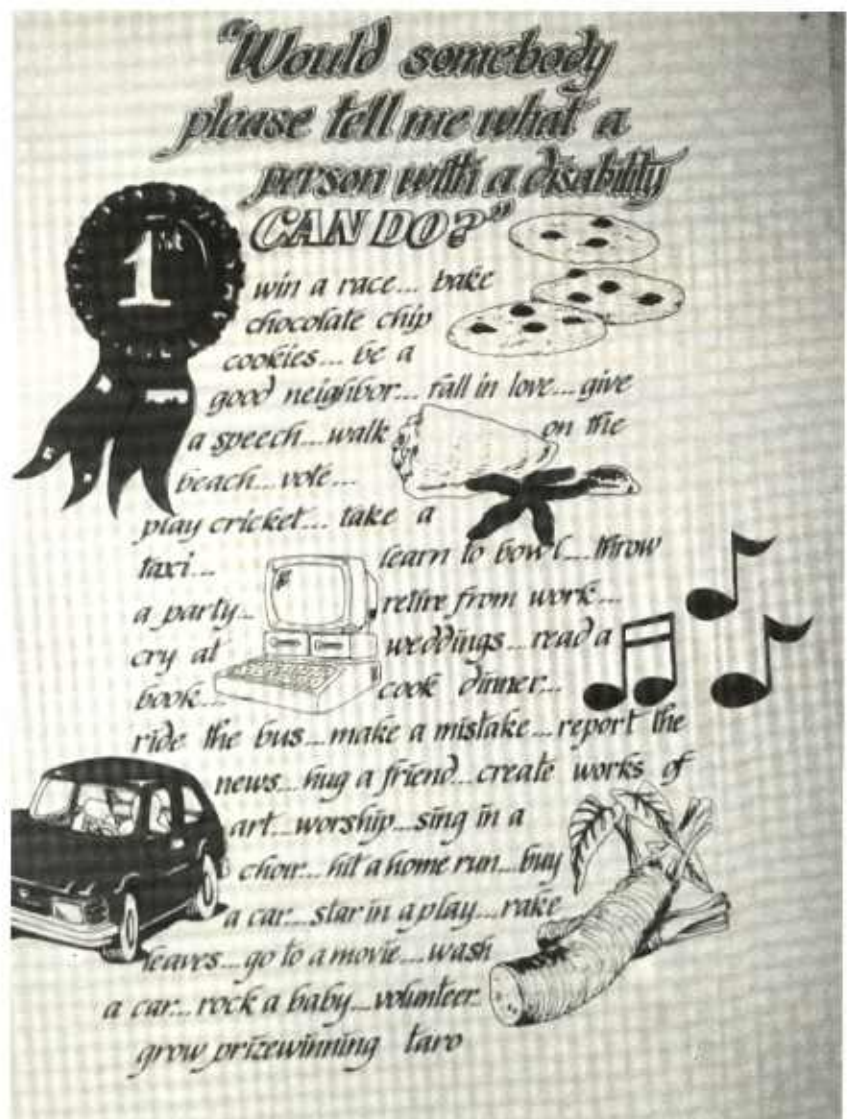 "Would somebody
please tell me what a
person with a disability
CAN DO?"
1st
win a race... bake
chocolate chip
cookies... be a
good neighbor... fall in love... give
a speech... walk on the
beach... vote...
play cricket... take a
taxi... learn to bowl... throw
a party... retire from work...
cry at weddings... read a
book... cook dinner...
ride the bus... make a mistake... report the
news... hug a friend... create works of
art... worship... sing in a
choir... hit a home run... buy
a car... star in a play... rake
leaves... go to a movie.... wash
a car... rock a baby... volunteer...
grow prizewinning taro